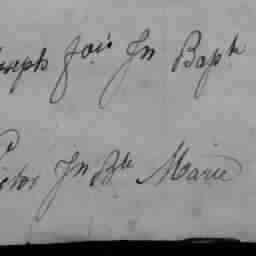 oseph fois Jn Bapt
ictor Jn Bte Marie